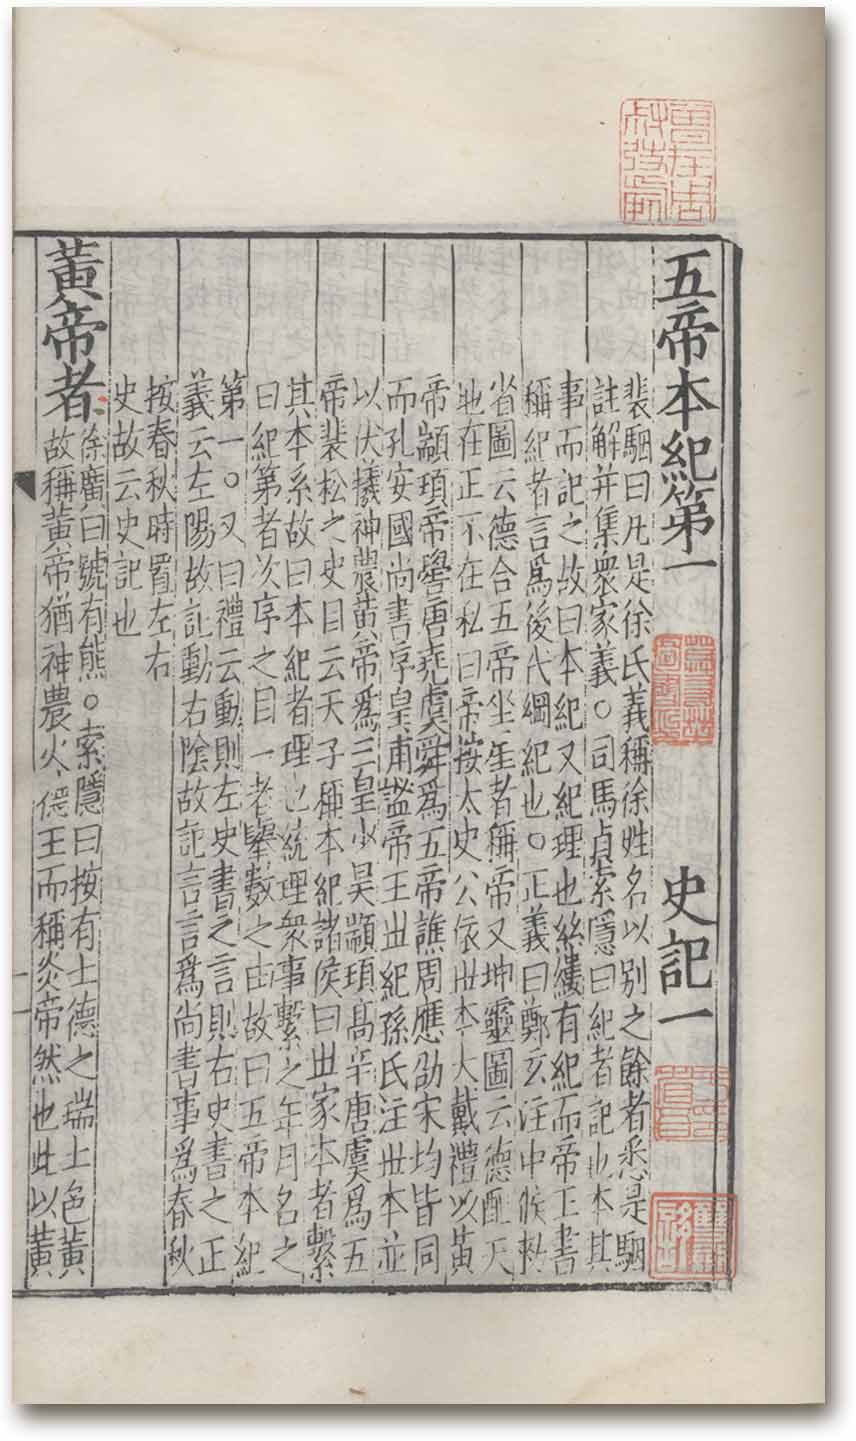 五帝本紀第一 史記一
裴駰曰凡是徐氏義稱徐姓名以別之餘者悉是駰
註解并集衆家義○司馬貞索隱曰紀者記也本其
事而記之故曰本紀又紀理也絲縷有紀而帝王書
稱紀者言爲後代綱紀也○正義曰鄭玄注中候勑
省圖云德合五帝坐星者稱帝又坤靈圖云德配天
地在正不在私曰帝按太史公依世本大戴禮以黃
帝顓頊帝嚳唐堯虞舜爲五帝譙周應劭宋均皆同
而孔安國尚書序皇甫謐帝王世紀孫氏注世本並
以伏羲神農黃帝爲三皇少昊顓頊高辛唐虞爲五
帝裴松之史目云天子稱本紀諸侯曰世家本者繫
其本系故曰本紀者理也統理衆事繫之年月名之
曰紀第者次序之目一者舉數之由故曰五帝本紀
第一○又曰禮云動則左史書之言則右史書之正
義云左陽故記動右陰故記言言爲尚書事爲春秋
按春秋時置左右
史故云史記也
黃帝者
徐廣曰號有熊○索隱曰按有土德之瑞土色黃
故稱黃帝猶神農火德王而稱炎帝然也此以黃